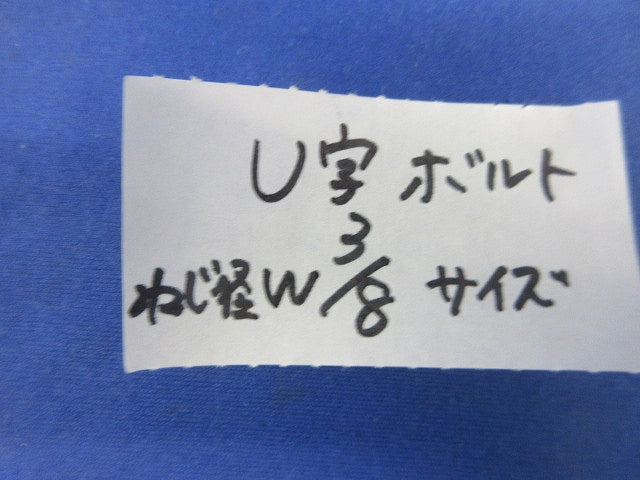 U字ボルト
ねじ経W3/8 サイズ